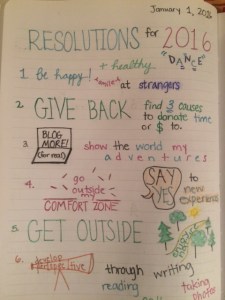 January 1, 2016
RESOLUTIONS for 2016
+ healthy
"DANCE"
1. be happy! *smile* at strangers
2. GIVE BACK find 3 causes
to donate time
or $ to.
3. BLOG MORE! (for real) show the world my
adventures
4. go outside my COMFORT ZONE
SAY YES to new experiences
5. GET OUTSIDE
6. through writing
reading
taking photos